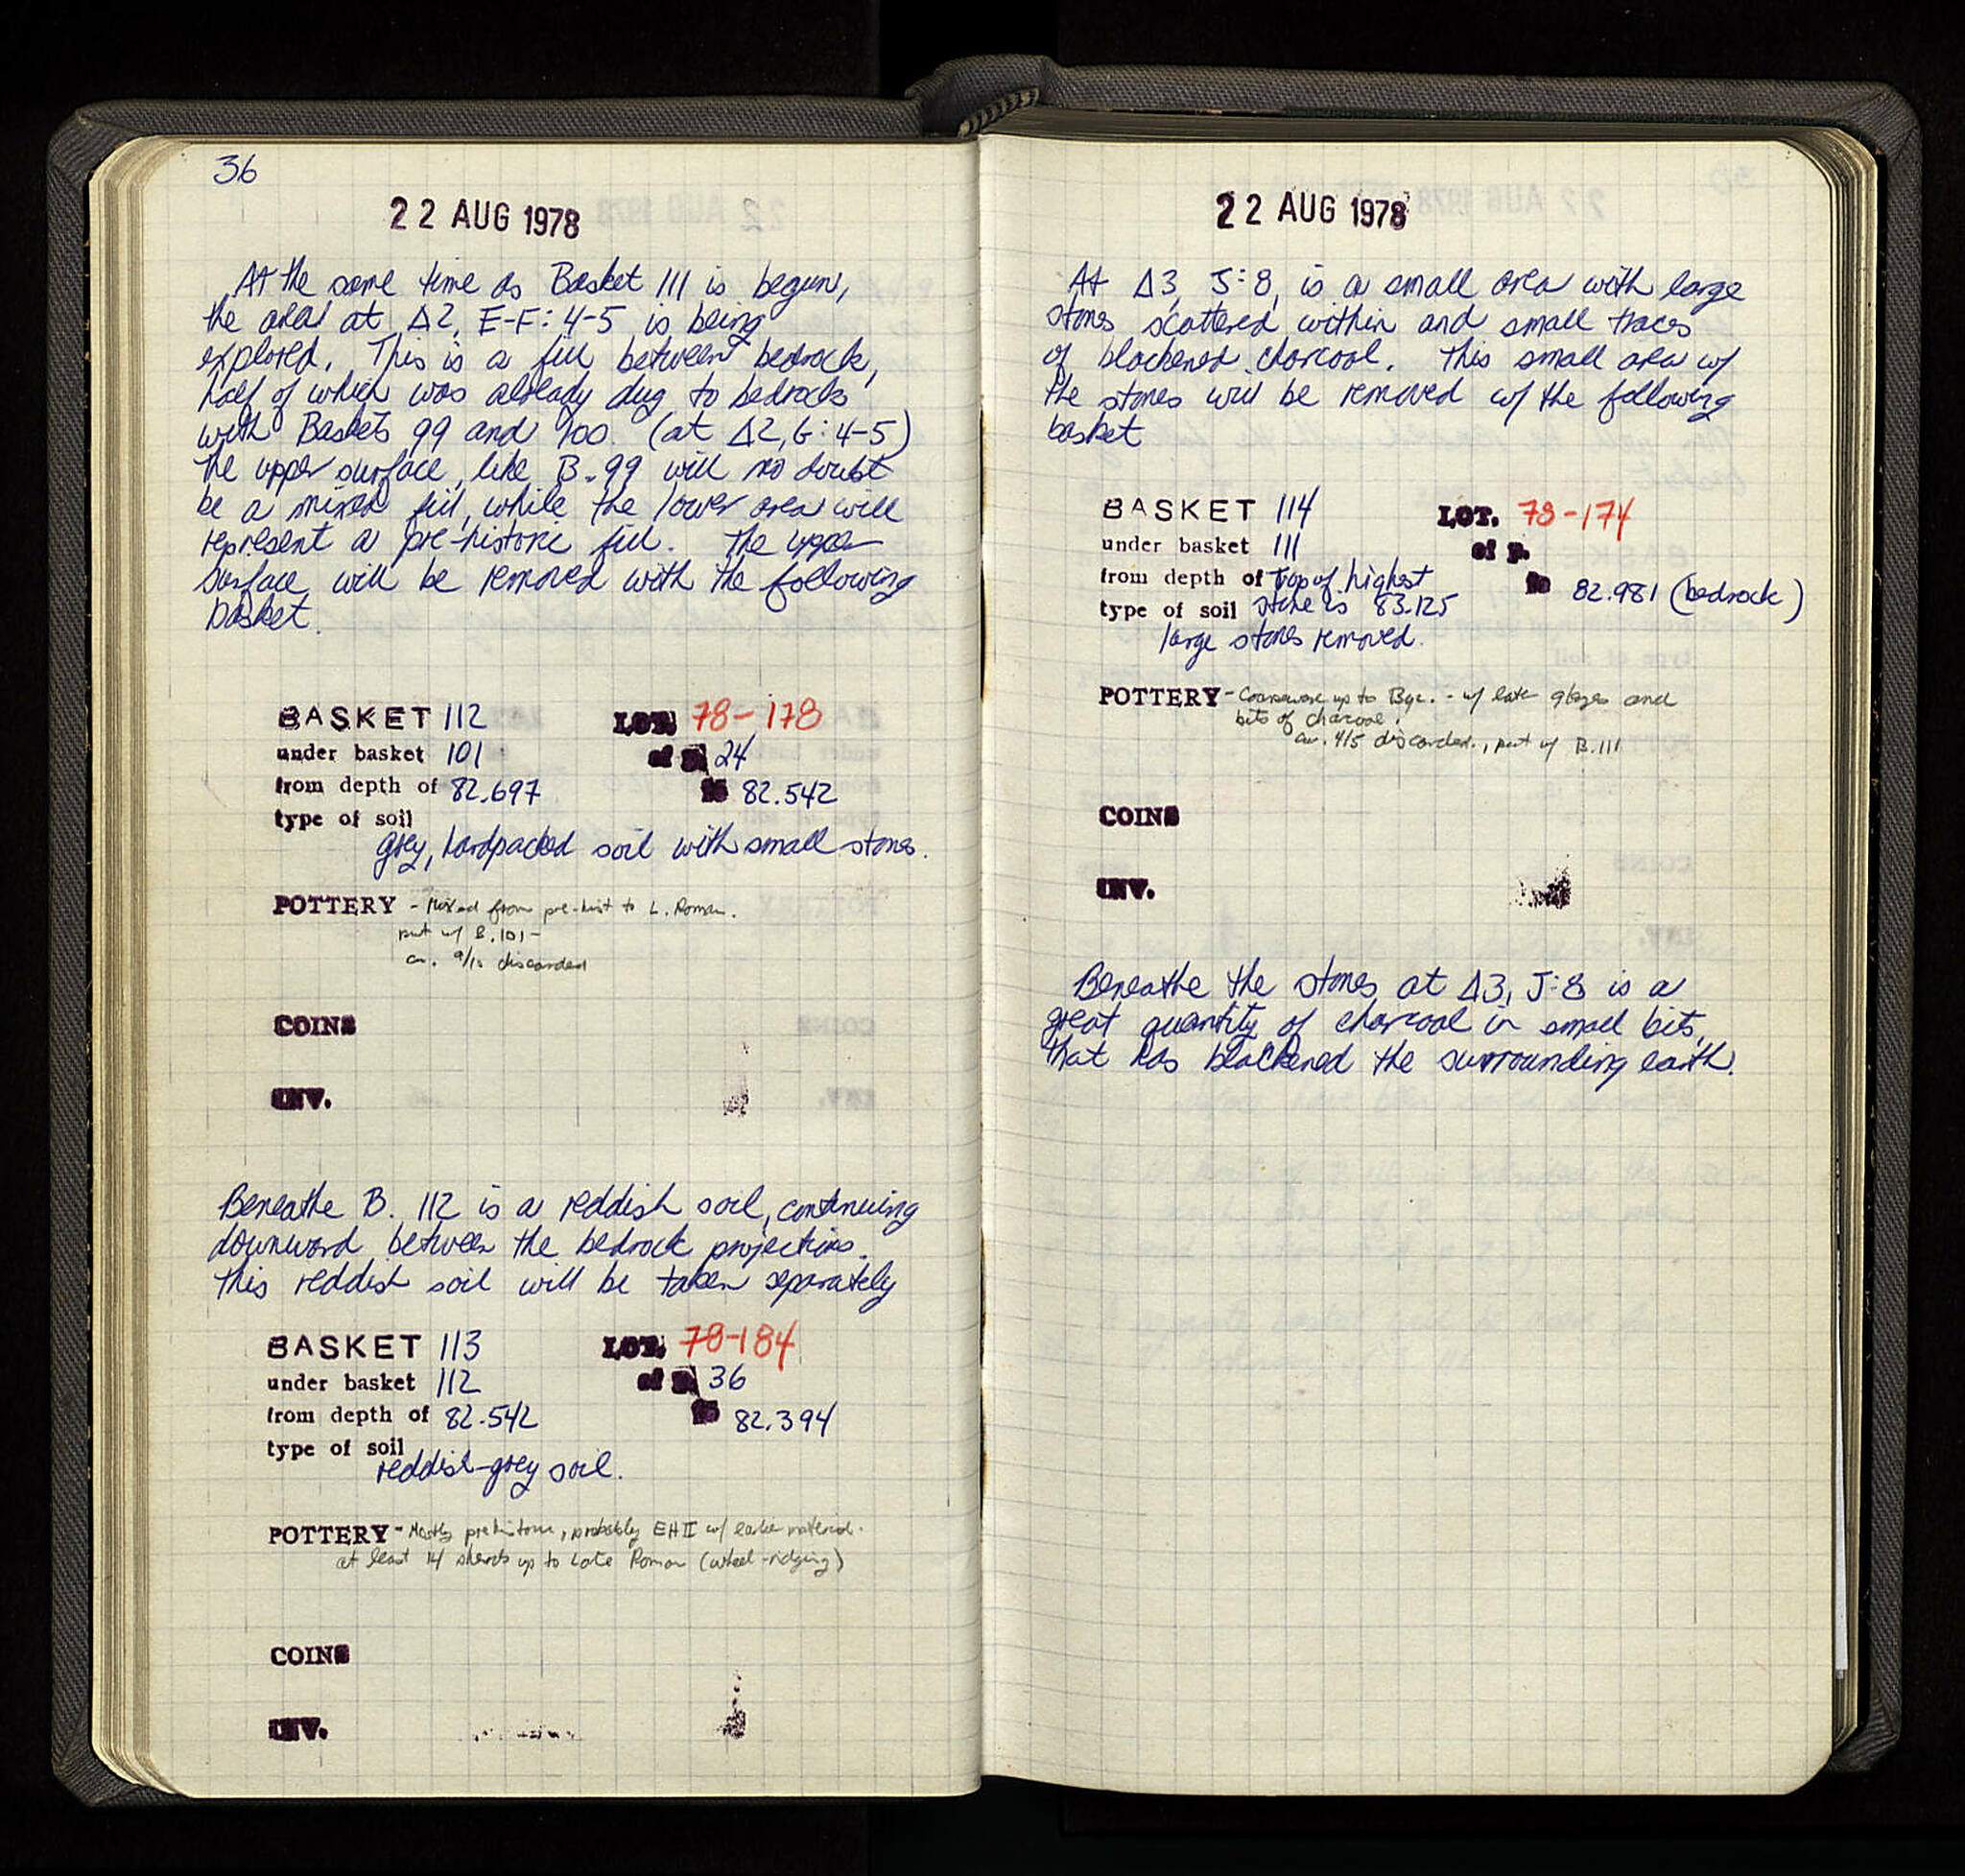 36
22 AUG 1978
At the same time as Basket 111 is begun,
the area at Δ2, E-F: 4-5 is being
explored. This is a fill between bedrock,
half of which was already dug to bedrock
with Baskets 99 and 100. (at Δ2, G: 4-5)
The upper surface, like B. 99 will no doubt
be a mixed fill, while the lower area will
represent a pre-historic fill. The upper
surface will be removed with the following
basket.
BASKET 112 LOT. 78-178
under basket 101 of p. 24
from depth of 82.697 to 82.542
type of soil
grey, hardpacked soil with small stones.
POTTERY - Mixed from pre-hist to L. Roman.
put w/ B. 101 -
ca. 9/10 discarded
COINS
INV.
Beneathe B. 112 is a reddish soil, continuing
downward between the bedrock projections.
This reddish soil will be taken separately
BASKET 113 LOT. 78-184
under basket 112 of p. 36
from depth of 82.542 to 82.394
type of soil
reddish-grey soil.
POTTERY - Mostly prehistoric, probably EH II w/ earlier material.
at least 14 sherds up to Late Roman (wheel-ridging)
COINS
INV.
22 AUG 1978
At Δ3, J:8, is a small area with large
stones scattered within and small traces
of blackened charcoal. This small area w/
the stones will be removed w/ the following
basket
BASKET 114 LOT. 78-174
under basket 111 of p.
from depth of Top of highest to 82.981 (bedrock)
type of soil stone is 83.125
large stones removed.
POTTERY - Coarseware up to Byz. - w/ late glazes and
bits of charcoal.
ca. 4/5 discarded., put w/ B. 111
COINS
INV.
Beneathe the stones at Δ3, J:8 is a
great quantity of charcoal in small bits,
that has blackened the surrounding earth.